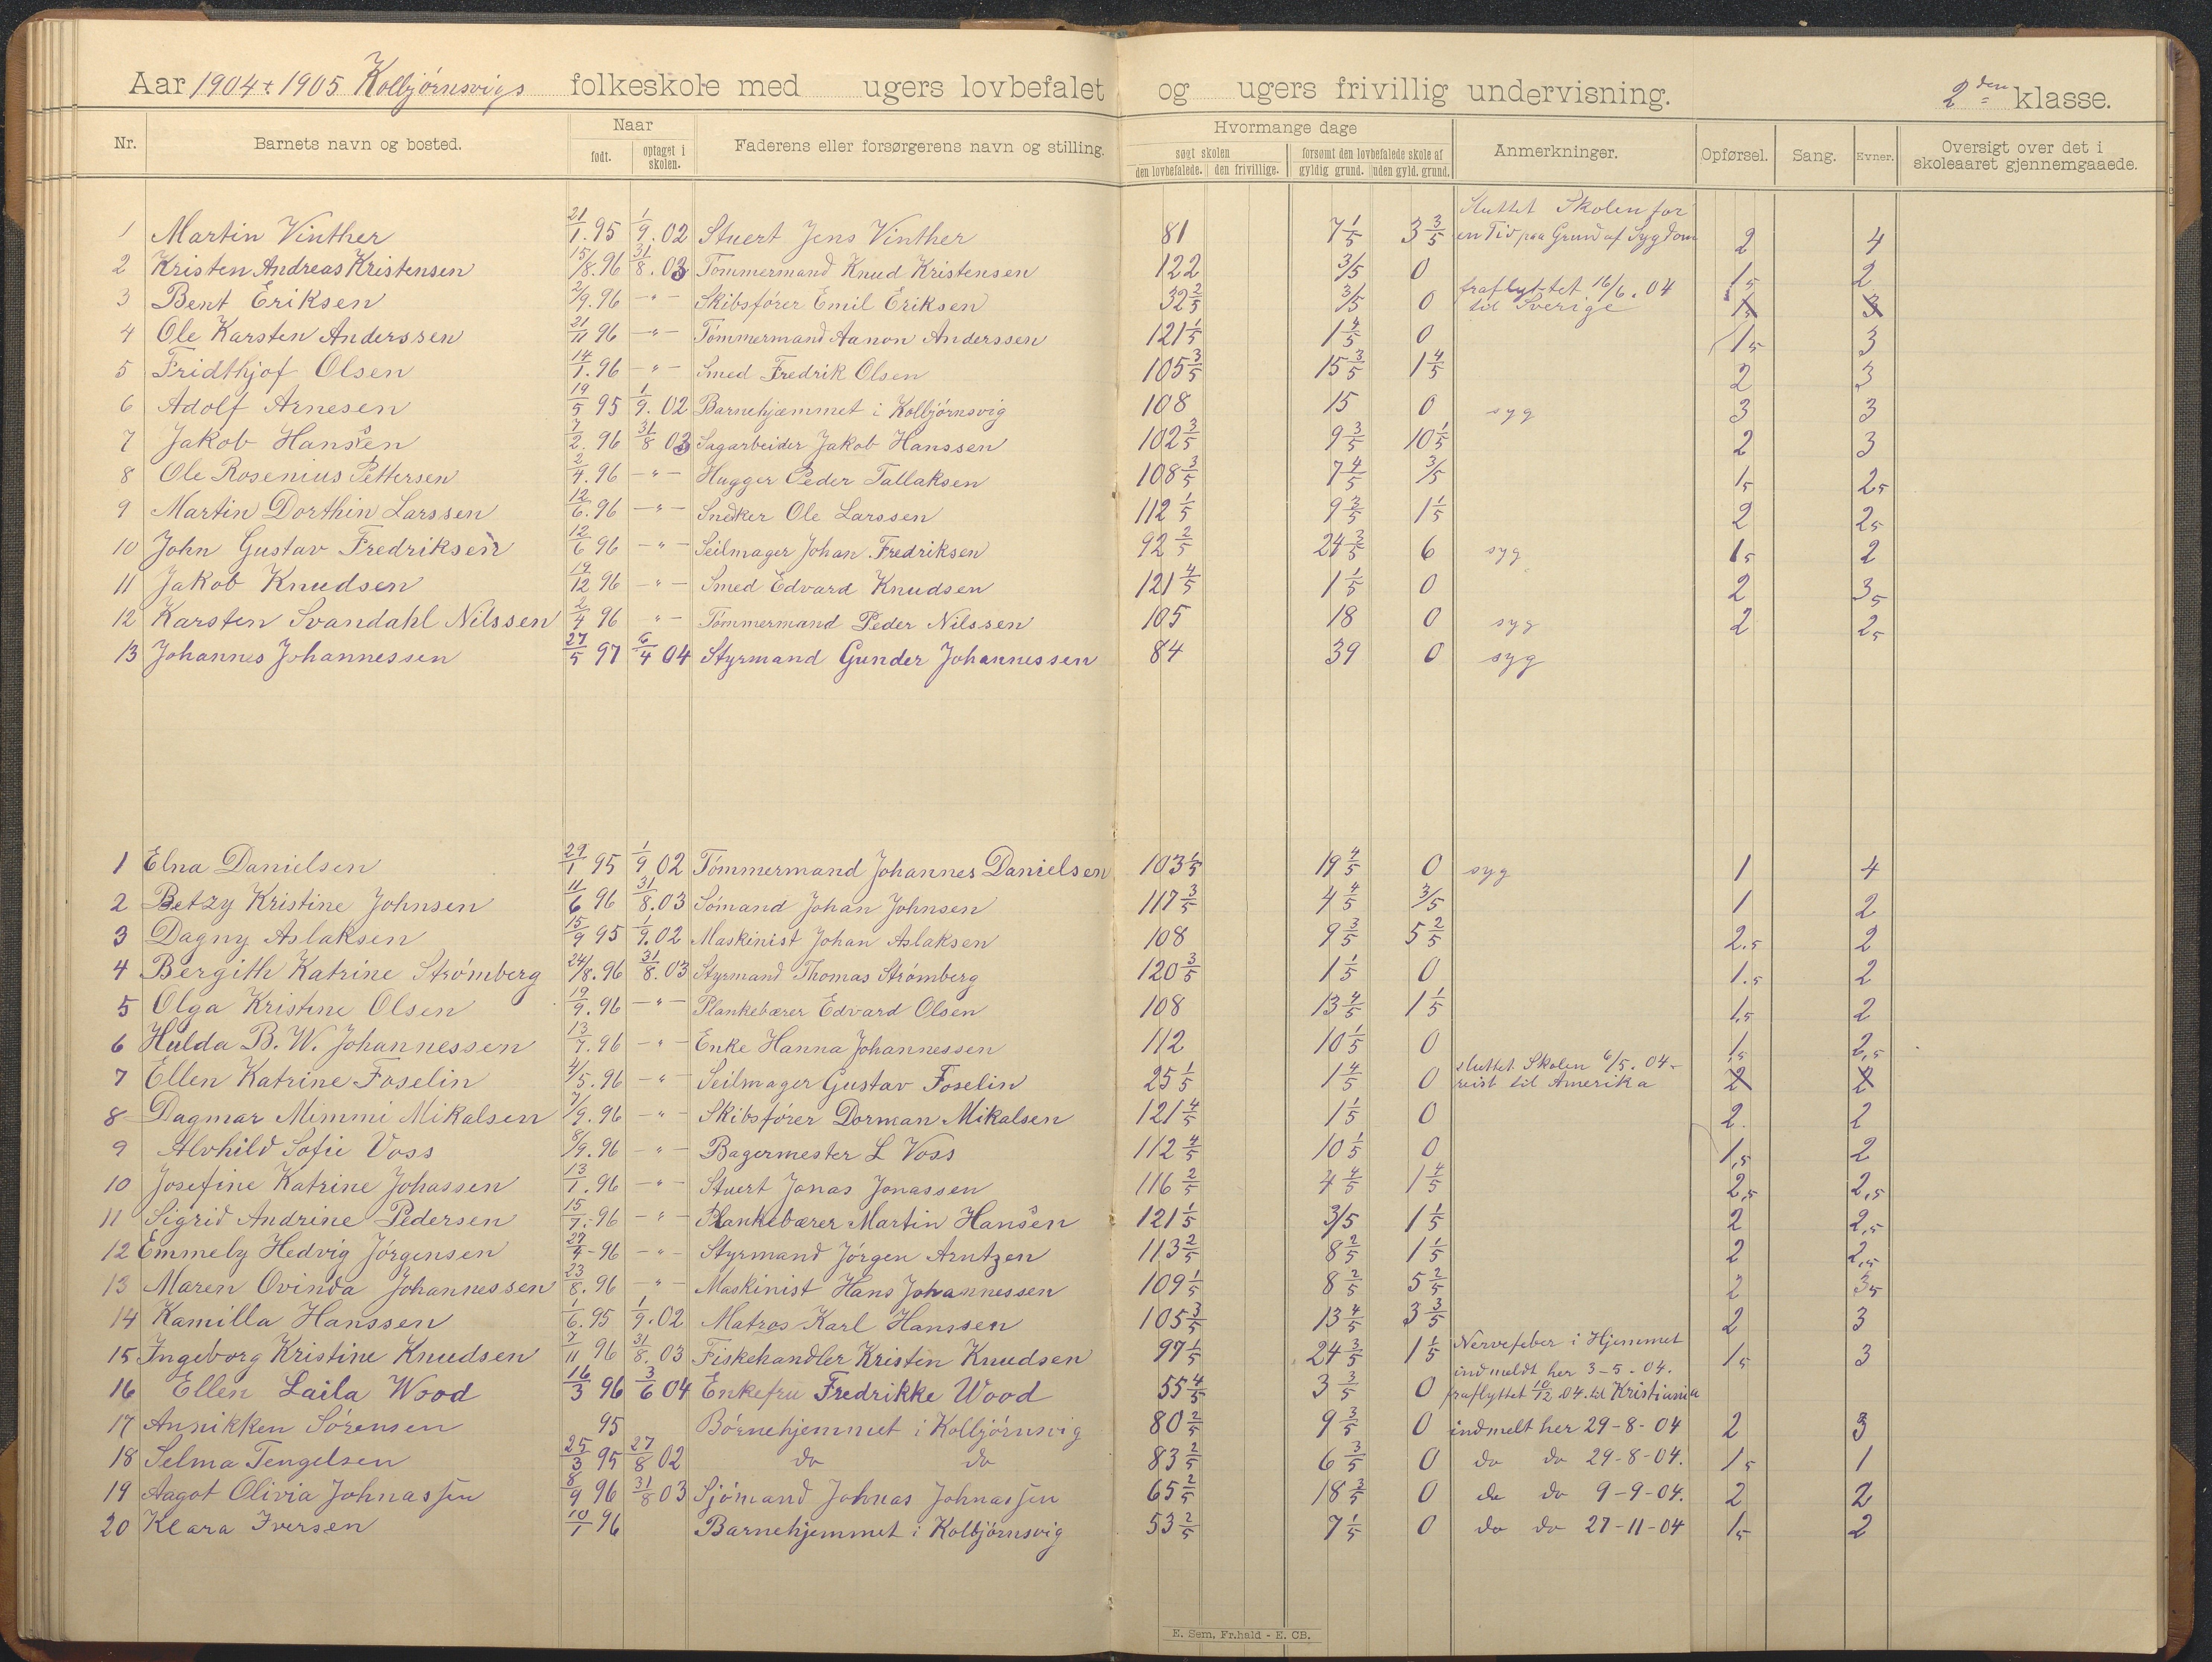 Aar 1904 & 1905 Kolbjørnsvigs folkeskole med ugers lovbefalet og ugers frivillig undervisning. 2den klasse.
Nr. Barnets navn og bosted. Naar født. optaget i skolen. Faderens eller forsørgerens navn og stilling. Hvormange dage søgt skolen den lovbefalede. den frivillige. forsømt den lovbefalede skole af gyldig grund. uden gyld. grund. Anmerkninger. Opførsel. Sang. Evner. Oversigt over det i skoleaaret gjennemgaaede.
1 Martin Vinther 21/1.95 1/9.02 Stuert Jens Vinther 81 7 1/5 3 3/5 Sluttet Skolen for en Tid paa Grund af Sygdom 2 4
2 Kristen Andreas Kristensen 15/8.96 31/8.03 Tømmermand Knud Kristensen 122 3/5 0 1,5 2
3 Bent Eriksen 2/9.96 -"- Skibsfører Emil Eriksen 32 2/5 3/5 0 fraflyttet 16/6.04 til Sverige 1,5 3
4 Ole Karsten Anderssen 21/11 96 -"- Tømmermand Aanon Anderssen 121 1/5 1 4/5 0 1,5 3
5 Fridthjof Olsen 14/1.96 -"- Smed Fredrik Olsen 105 3/5 15 3/5 1 4/5 2 3
6 Adolf Arnesen 19/5 95 1/9.02 Barnehjæmmet i Kolbjørnsvig 108 15 0 syg 3 3
7 Jakob Hanssen 7/2.96 31/8 03 Sagarbeider Jakob Hanssen 102 3/5 9 3/5 10 1/5 2 3
8 Ole Rosenius Pettersen 2/4.96 -"- Hugger Peder Tallaksen 108 3/5 7 4/5 3/5 1,5 2,5
9 Martin Dorthin Larssen 12/6.96 -"- Snedker Ole Larssen 112 1/5 9 3/5 1 1/5 2 2,5
10 John Gustav Fredriksen 12/6 96 -"- Seilmager Johan Fredriksen 92 2/5 24 3/5 6 syg 1,5 2
11 Jakob Knudsen 14/12 96 -"- Smed Edvard Knudsen 121 4/5 1 1/5 0 2 3,5
12 Karsten Svandahl Nilssen 2/4 96 "- Tømmermand Peder Nilssen 105 18 0 syg 2 2,5
13 Johannes Johannessen 27/5 97 6/4 04 Styrmand Gunder Johannessen 84 39 0 syg
1 Elna Danielsen 29/1 95 1/9 02 Tømmermand Johannes Danielsen 103 1/5 19 4/5 0 syg 1 4
2 Betzy Kristine Johnsen 11/6 96 31/8.03 Sømand Johan Johnsen 117 3/5 4 4/5 3/5 1 2
3 Dagny Aslaksen 15/9 95 1/9.02 Maskinist Johan Aslaksen 108 9 3/5 5 2/5 2.5 2
4 Bergith Katrine Strømberg 24/8.96 31/8.03 Styrmand Thomas Strømberg 120 3/5 1 1/5 0 1.5 2
5 Olga Kristine Olsen 19/9.96 -"- Plankebærer Edvard Olsen 108 13 4/5 1 1/5 1,5 2
6 Hulda B. W. Johannessen 13/7.96 -"- Enke Hanna Johannessen 112 10 1/5 0 1,5 2,5
7 Ellen Katrine Foselin 4/5.96 -"- Seilmager Gustav Foselin 25 1/5 1 4/5 0 sluttet Skolen 6/5.04- reist til Amerika 2 2
8 Dagmar Mimmi Mikalsen 7/9.96 -"- Skibsfører Dorman Mikalsen 121 4/5 1 1/5 0 2 2
9 Alvhild Sofie Voss 8/9.96 -"- Bagermester L Voss 112 4/5 10 1/5 0 1,5 2
10 Josefine Katrine Johassen 13/1.96 -"- Stuert Jonas Jonassen 116 2/5 4 4/5 1 4/5 2,5 2,5
11 Sigrid Andrine Pedersen 15/7.-96 -"- Plankebærer Martin Hansen 121 1/5 3/5 1 1/5 2 2,5
12 Emmely Hedvig Jørgensen 27/4-96 -"- Styrmand Jørgen Arntzen 113 2/5 8 2/5 1 1/5 2 2,5
13 Maren Ovinda Johannessen 23/8.96 -"- Maskinist Hans Johannessen 109 1/5 8 2/5 5 2/5 2 3,5
14 Kamilla Hanssen 1/6.95 1/9.02 Matros Karl Hanssen 105 3/5 13 4/5 3 3/5 2 3
15 Ingeborg Kristine Knudsen 7/11 96 31/8.03 Fiskehandler Kristen Knudsen 97 1/5 24 3/5 1 1/5 Nervefeber i Hjemmet 1,5 3
16 Ellen Laila Wood 16/3 96 3/6 04 Enkefru Fredrikke Wood 55 4/5 3 3/5 0 indmeldt her 3-5-04. fraflyttet 10/12.04. til Kristiania
17 Annikken Sørensen 95 Børnehjemmet i Kolbjørnsvig 80 2/5 9 3/5 0 indmelt her 29-8-04 2 3
18 Selma Tengelsen 25/3 95 27/8 02 do do 83 2/5 6 3/5 0 do do 29-8-04. 1,5 1
19 Aagot Olivia Johnassen 8/9 96 31/8 03 Sjømand Johnas Johnassen 65 2/5 18 3/5 0 do do 9-9-04. 2 2
20 Klara Iversen 10/1 96 Barnehjemmet i Kolbjørnsvig 53 2/5 7 1/5 0 do do 27-11-04 1,5 2
E. Sem, Fr.hald - E. CB.